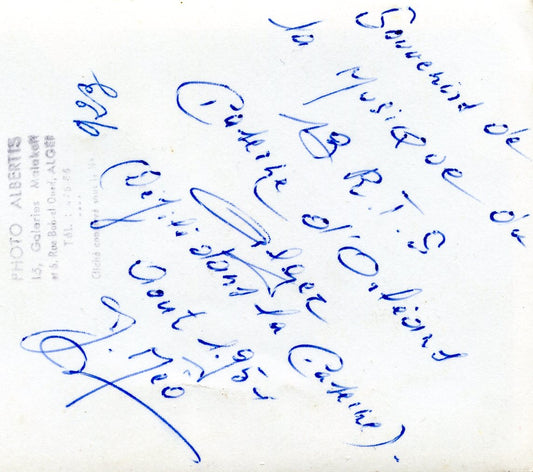 Souvenirs de
la Musique du
19 R.T.S
Caserne d'Orléans
Alger
(Défilé dans la Caserne).
Aout 195
J. Méo
PHOTO ALBERTIS
13, Galeries Malakoff
et 6, Rue Bab-el-Oued, ALGER
TÉL. :
Cliché conservé sous le No
923